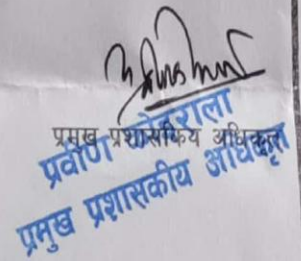 प्रमुख प्रशासकिय अधिकृत
प्रवीण
प्रमुख प्रशासकीय अधिकृत